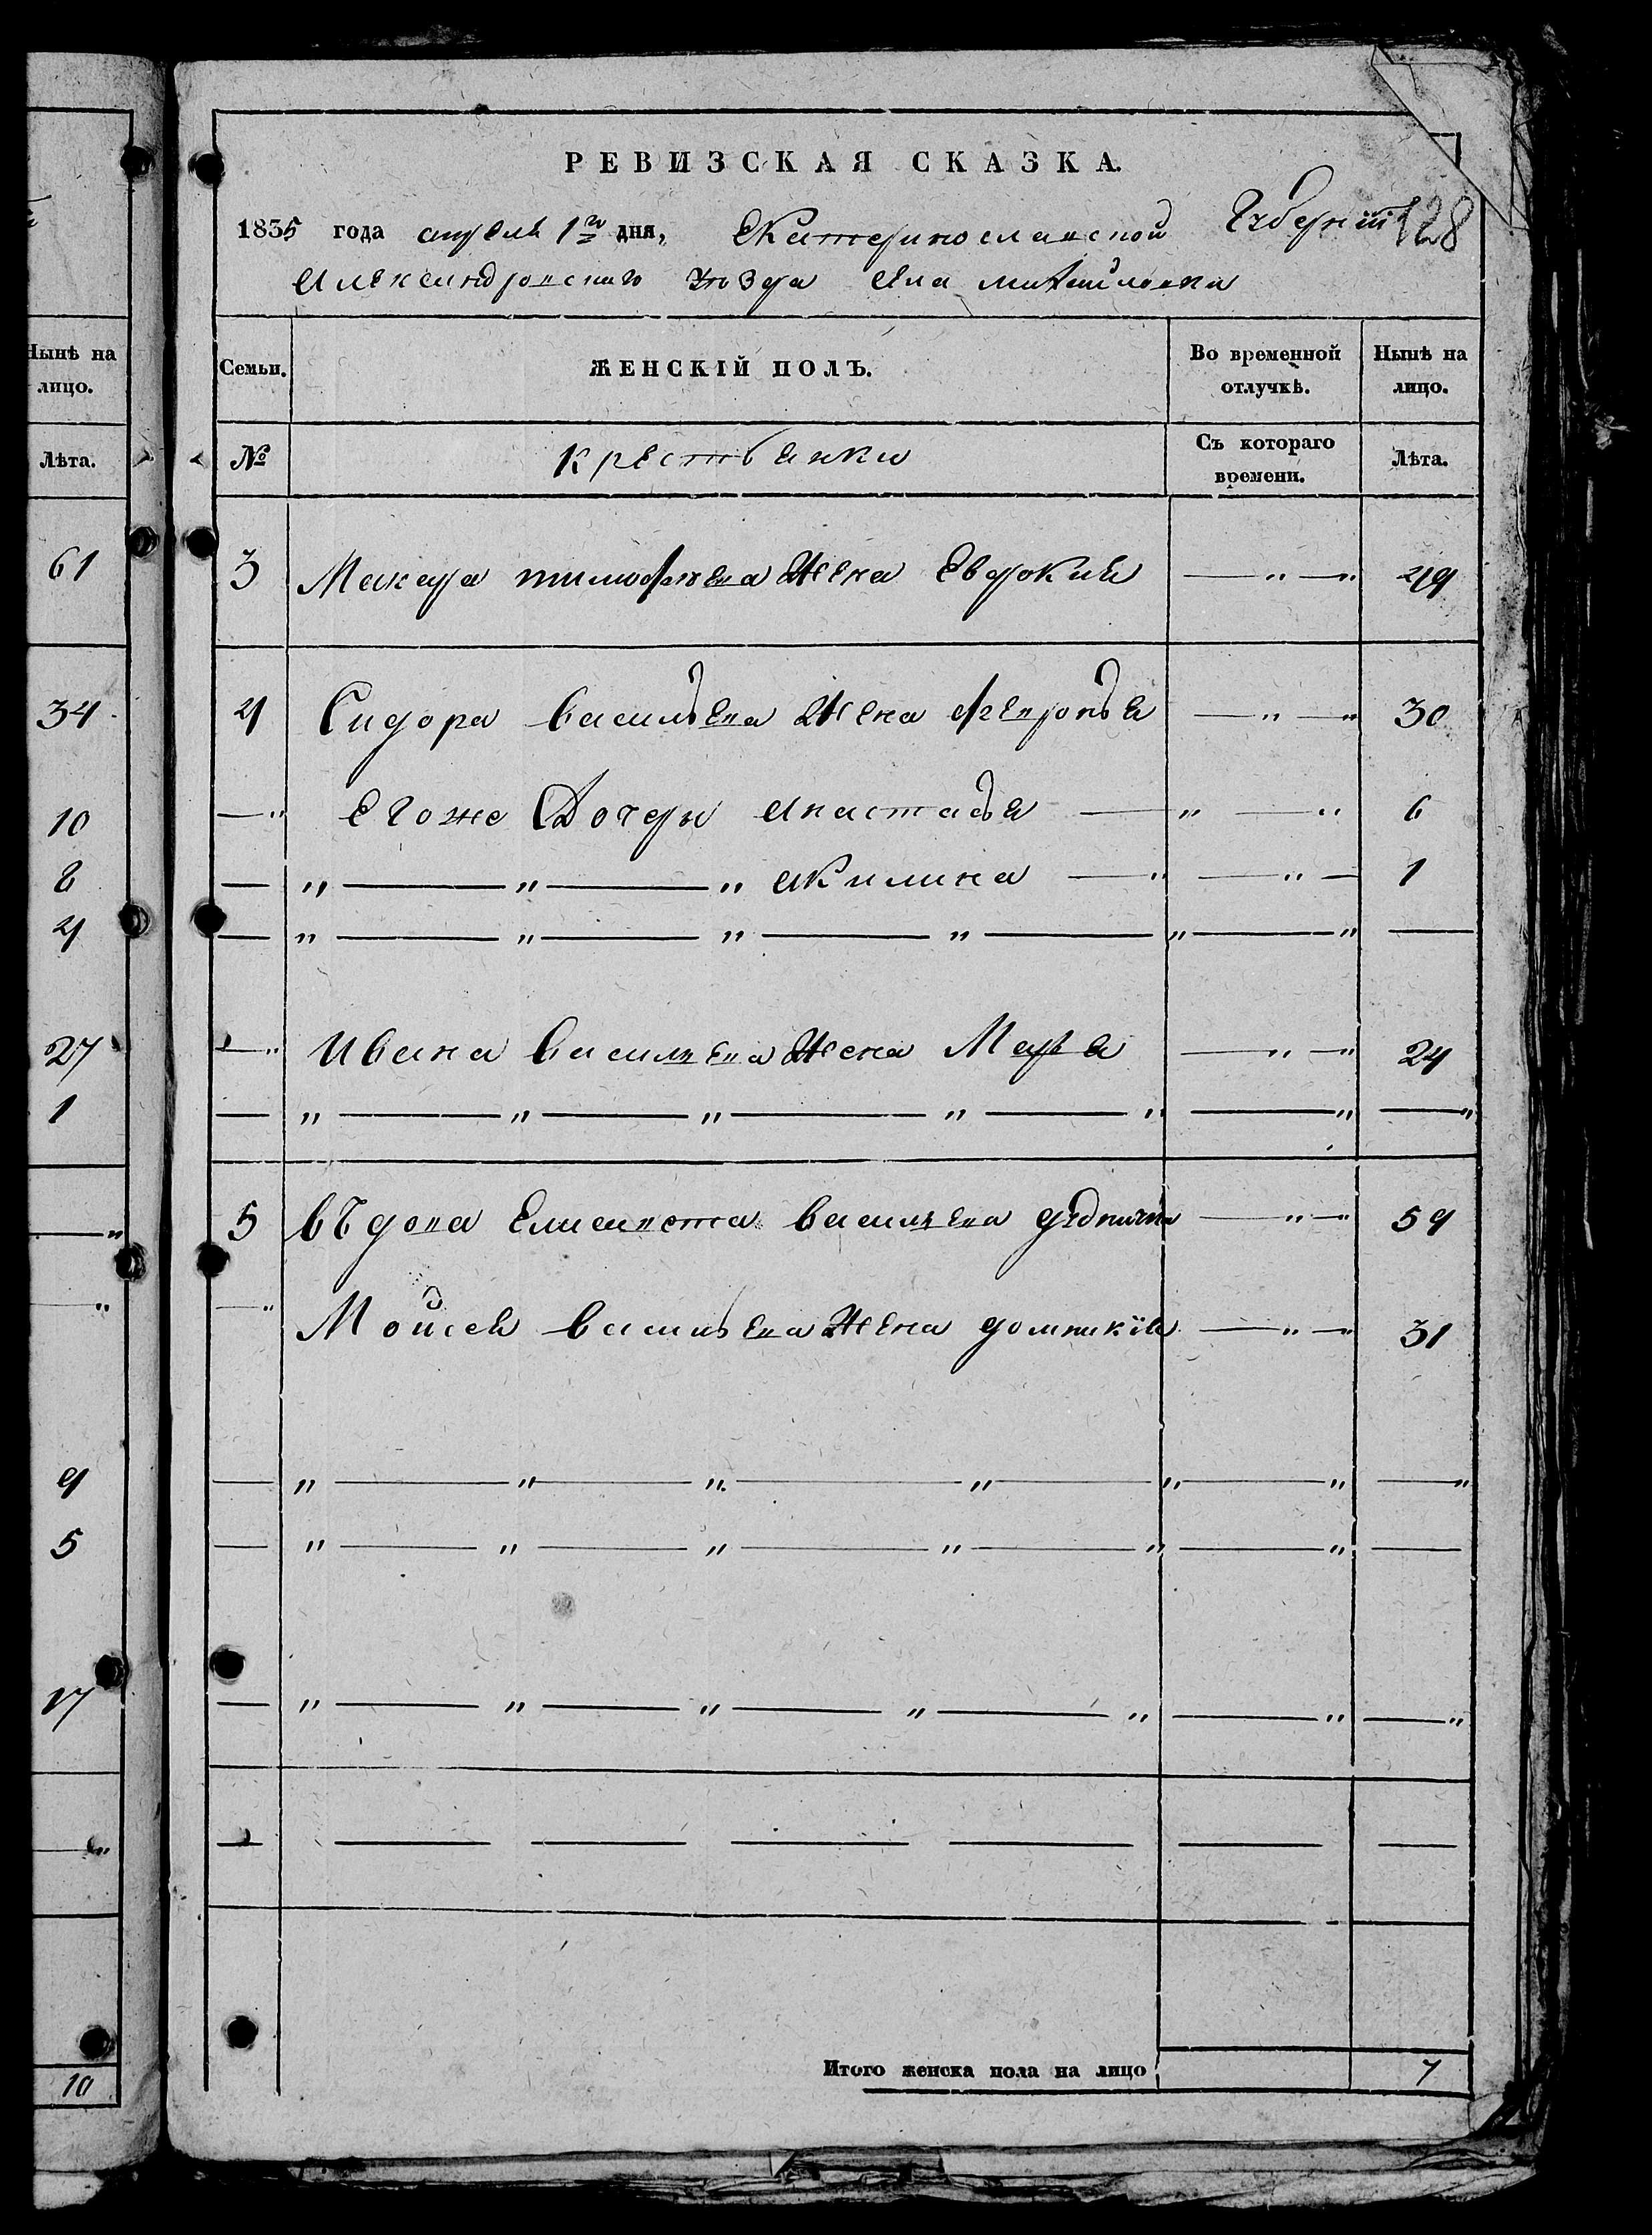 РЕВИЗСКАЯ СКАЗКА.
1835 года апреля 1го дня, Екатеринославской Губернiи 128
Александровскаго уѣзда Села михайловки
Нынѣ на лицо.
Семьи. ЖЕНСКІЙ ПОЛЪ. Во временной отлучкѣ. Нынѣ на лицо.
Лѣта.
№ крестьянки Съ котораго времени. Лѣта.
61
3 Макара тимофѣева жена Евдокия — „ — „ 49
34
4 Сидора васильева жена февронья — „ — „ 30
10
— „ Егоже Дочери анастасья — „ — „ 6
8
— „ — „ — „ акилина — „ — „ — 1
4
— „ — „ — „ — „ — „ — „ —
27
— „ Ивана васильева жена Марья — „ — „ 24
1
— „ — „ — „ — „ — „ — „ — „
— „
5 въдова васильева — „ — „ 59
— „
— „ Мойсея васильева жена домникiя — „ — „ 31
9
— „ — „ — „ — „ — „ — „ — „
5
— „ — „ — „ — „ — „ — „ —
17
— „ — „ — „ — „ — „ — „ — „
— „
— — — — — — —
10
Итого женска пола на лицо 7